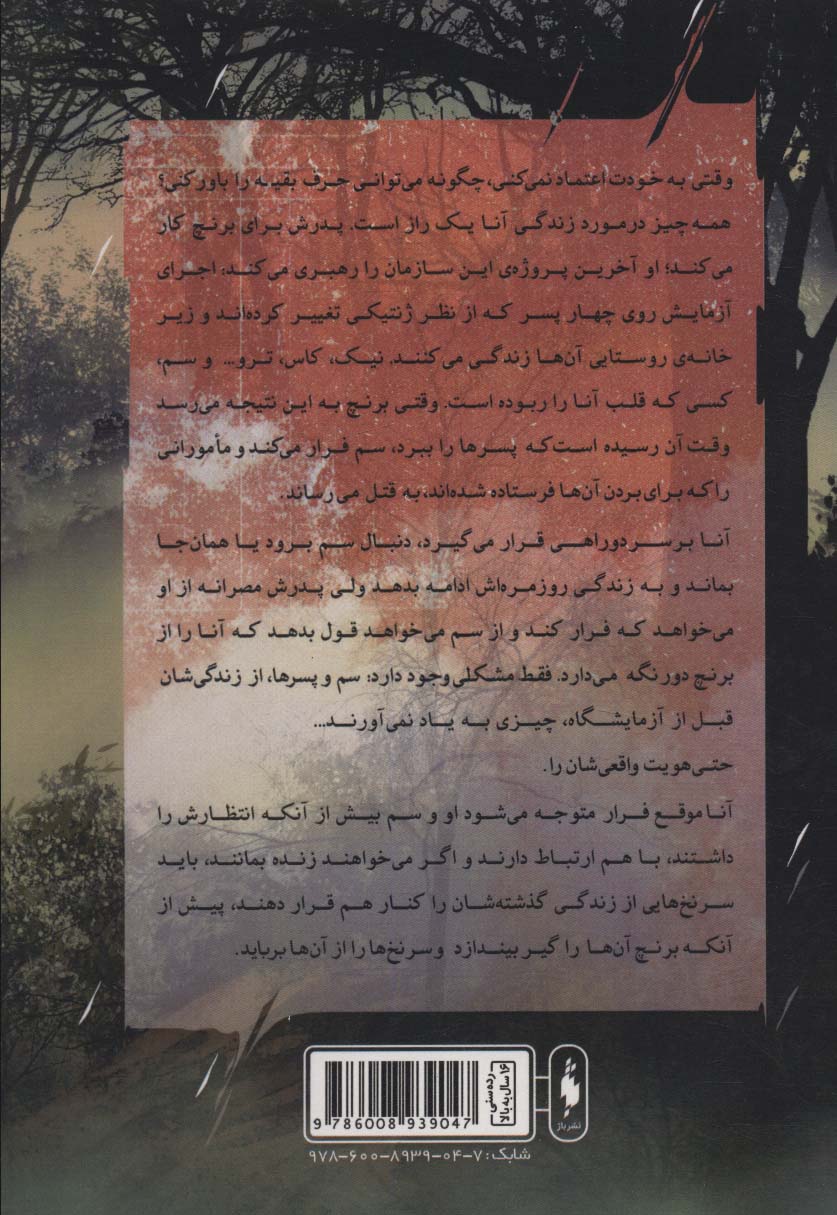 وقتی به خودت اعتماد نمی‌کنی، چگونه می‌توانی حرف بقیه را باور کنی؟
همه چیز درمورد زندگی آنا یک راز است. پدرش برای برنچ کار
می‌کند؛ او آخرین پروژه‌ی این سازمان را رهبری می‌کند: اجرای
آزمایش روی چهار پسر که از نظر ژنتیکی تغییر کرده‌اند و زیر
خانه‌ی روستایی آن‌ها زندگی می‌کنند. نیک، کاس، ترو... و سم،
کسی که قلب آنا را ربوده است. وقتی برنچ به این نتیجه می‌رسد
وقت آن رسیده است که پسرها را ببرد، سم فرار می‌کند و مأمورانی
را که برای بردن آن‌ها فرستاده شده‌اند، به قتل می‌رساند.
آنا بر سر دوراهی قرار می‌گیرد، دنبال سم برود یا همان‌جا
بماند و به زندگی روزمره‌اش ادامه بدهد ولی پدرش مصرانه از او
می‌خواهد که فرار کند و از سم می‌خواهد قول بدهد که آنا را از
برنچ دور نگه می‌دارد. فقط مشکلی وجود دارد: سم و پسرها، از زندگی‌شان
قبل از آزمایشگاه، چیزی به یاد نمی‌آورند...
حتی هویت واقعی‌شان را.
آنا موقع فرار متوجه می‌شود او و سم بیش از آنکه انتظارش را
داشتند، با هم ارتباط دارند و اگر می‌خواهند زنده بمانند، باید
سرنخ‌هایی از زندگی گذشته‌شان را کنار هم قرار دهند، پیش از
آنکه برنچ آن‌ها را گیر بیندازد و سرنخ‌ها را از آن‌ها برباید.
رده سنی
۱۶ سال به بالا
نشر باژ
9 786008 939047
شابک: ۷-۰۴-۸۹۳۹-۶۰۰-۹۷۸